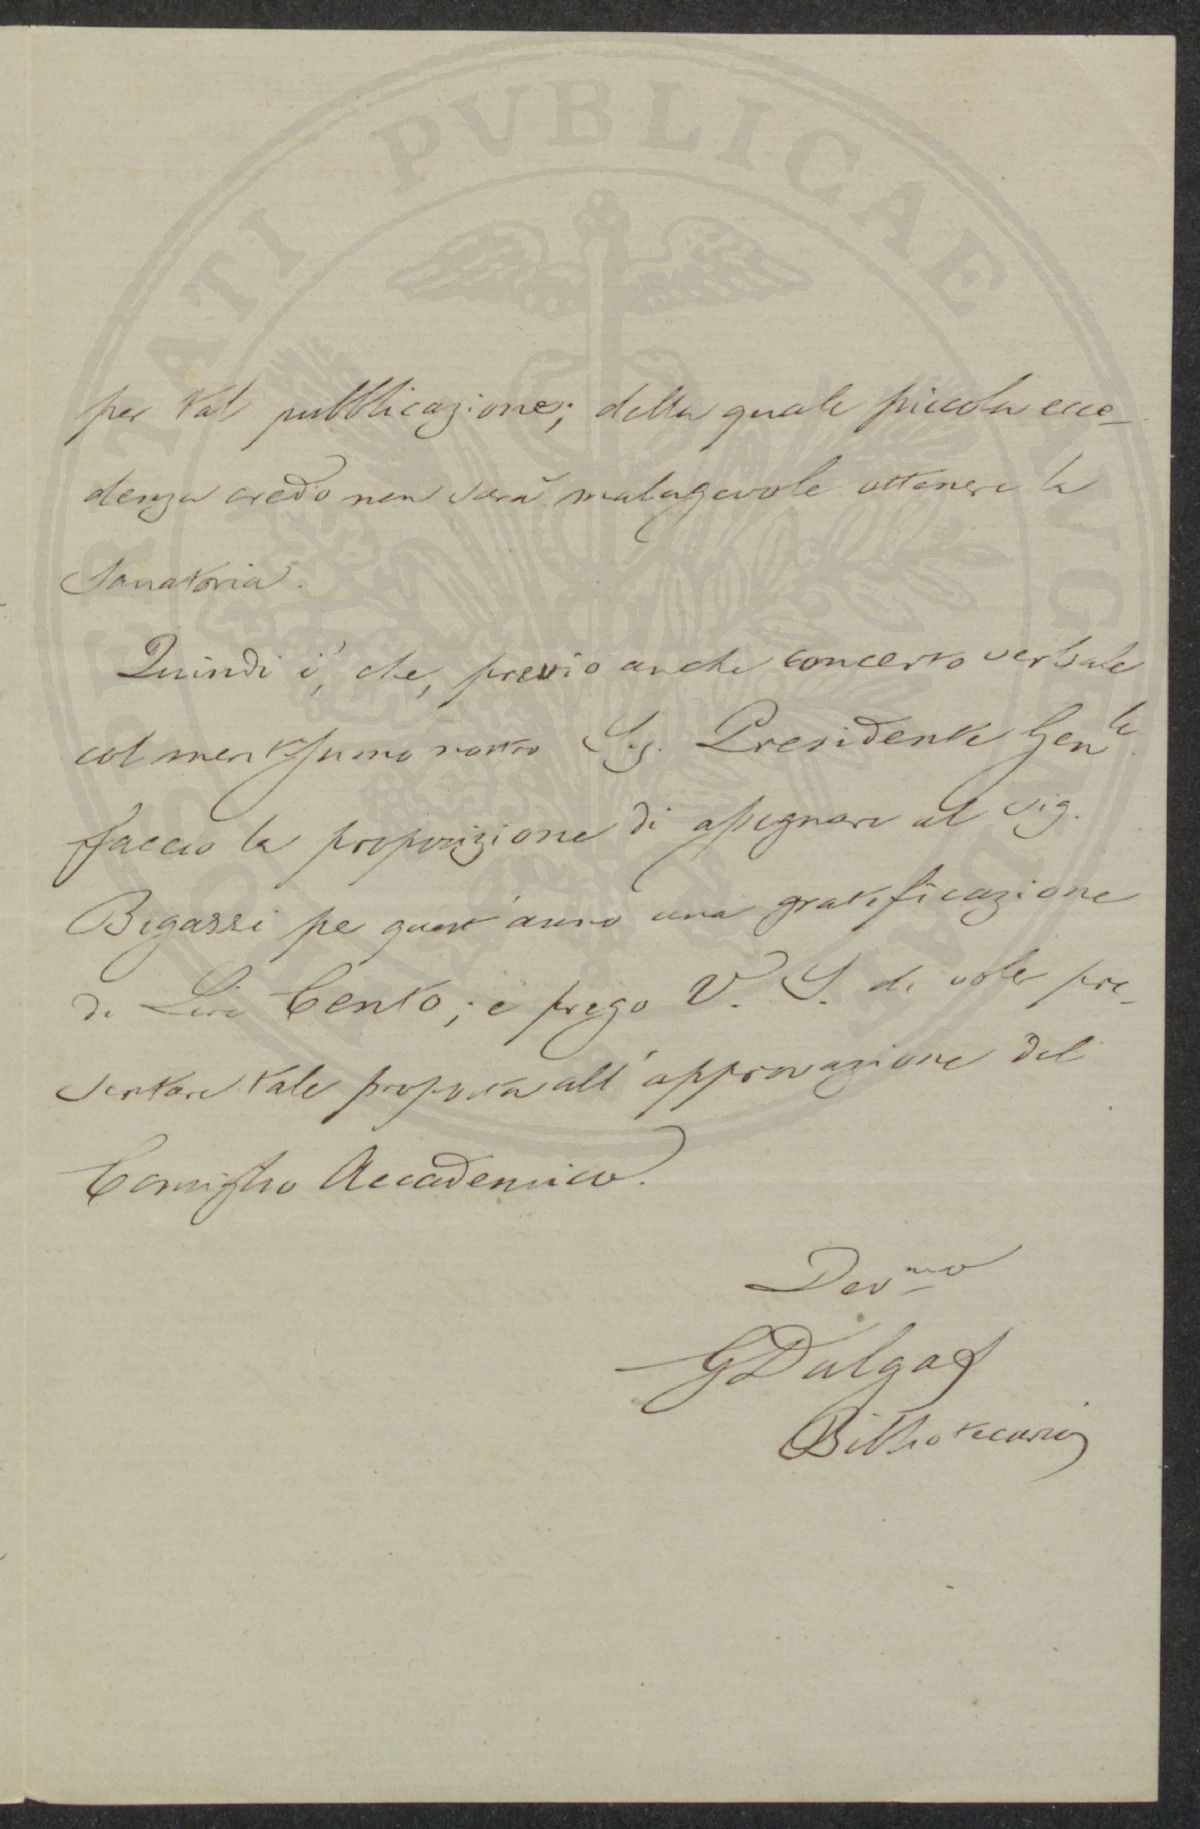 PROSPERITATI PUBLICAE AUGENDAE
per tal pubblicazione; della quale piccola ecce-
denza credo non sarà malagevole ottenere la
Sanatoria.
Quindi è, che, previo anche concerto verbale
col meritissimo nostro Sig. Presidente Gen.le
faccio la proposizione di assegnare al sig.
Bigazzi pe quest'anno una gratificazione
di Lire Cento; e prego V. S. di voler pre-
sentare tale proposta all'approvazione del
Consiglio Accademico.
Dev.mo
G Dalgas
Bibliotecario